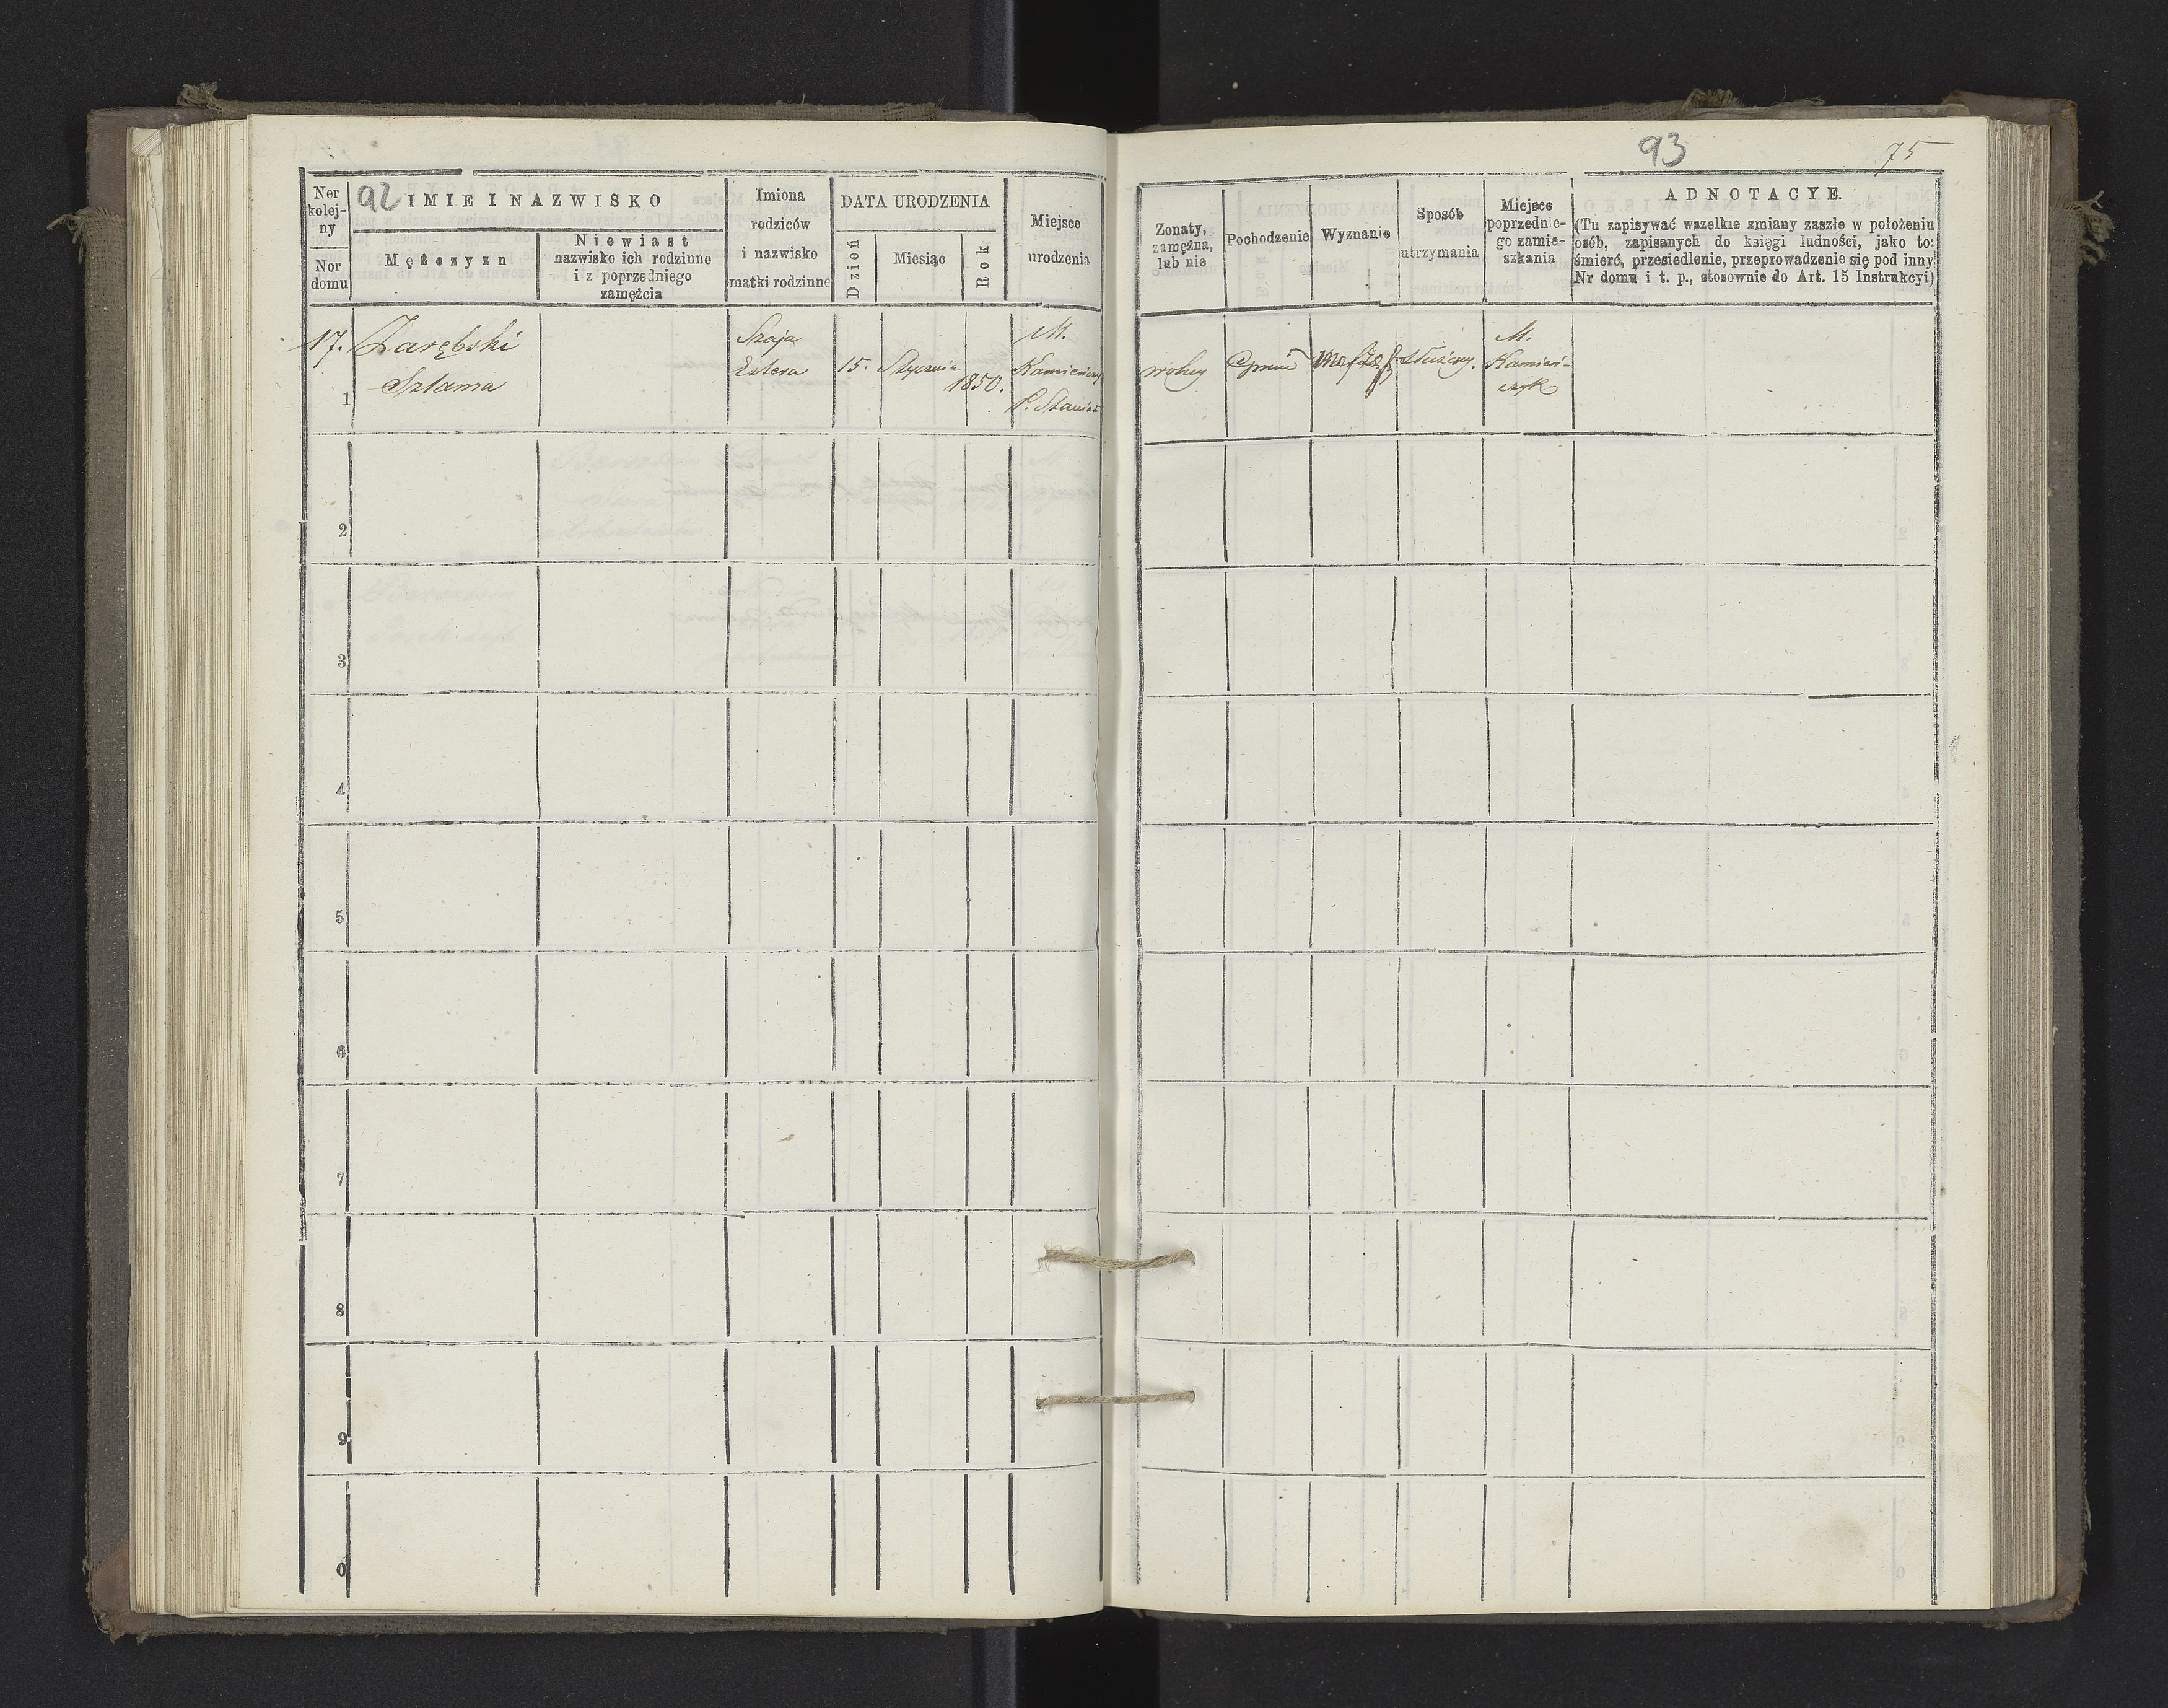 92
93
75
Ner kolejny
Nor domu
IMIE I NAZWISKO
Mężczyzn
Niewiast
nazwisko ich rodzinne
i z poprzedniego
zamęźcia
Imiona
rodziców
i nazwisko
matki rodzinne
DATA URODZENIA
Dzień
Miesiąc
Rok
Miejsce
urodzenia
Zonaty,
zamężna,
lub nie
Pochodzenie
Wyznanie
Sposób
utrzymania
Miejsce
poprzednie-
go zamie-
szkania
ADNOTACYE.
(Tu zapisywać wszelkie zmiany zaszłe w położeniu
osób, zapisanych do księgi ludności, jako to:
śmierć, przesiedlenie, przeprowadzenie się pod inny
Nr domu i t. p., stosownie do Art. 15 Instrukcyi)
17.
Zarębski
Szlama
Szaja
Estera
15.
Stycznia
1850.
M.
Kamieńczyk
P.
wolny
służący.
M.
Kamień-
czyk
1
2
3
4
5
6
7
8
9
0